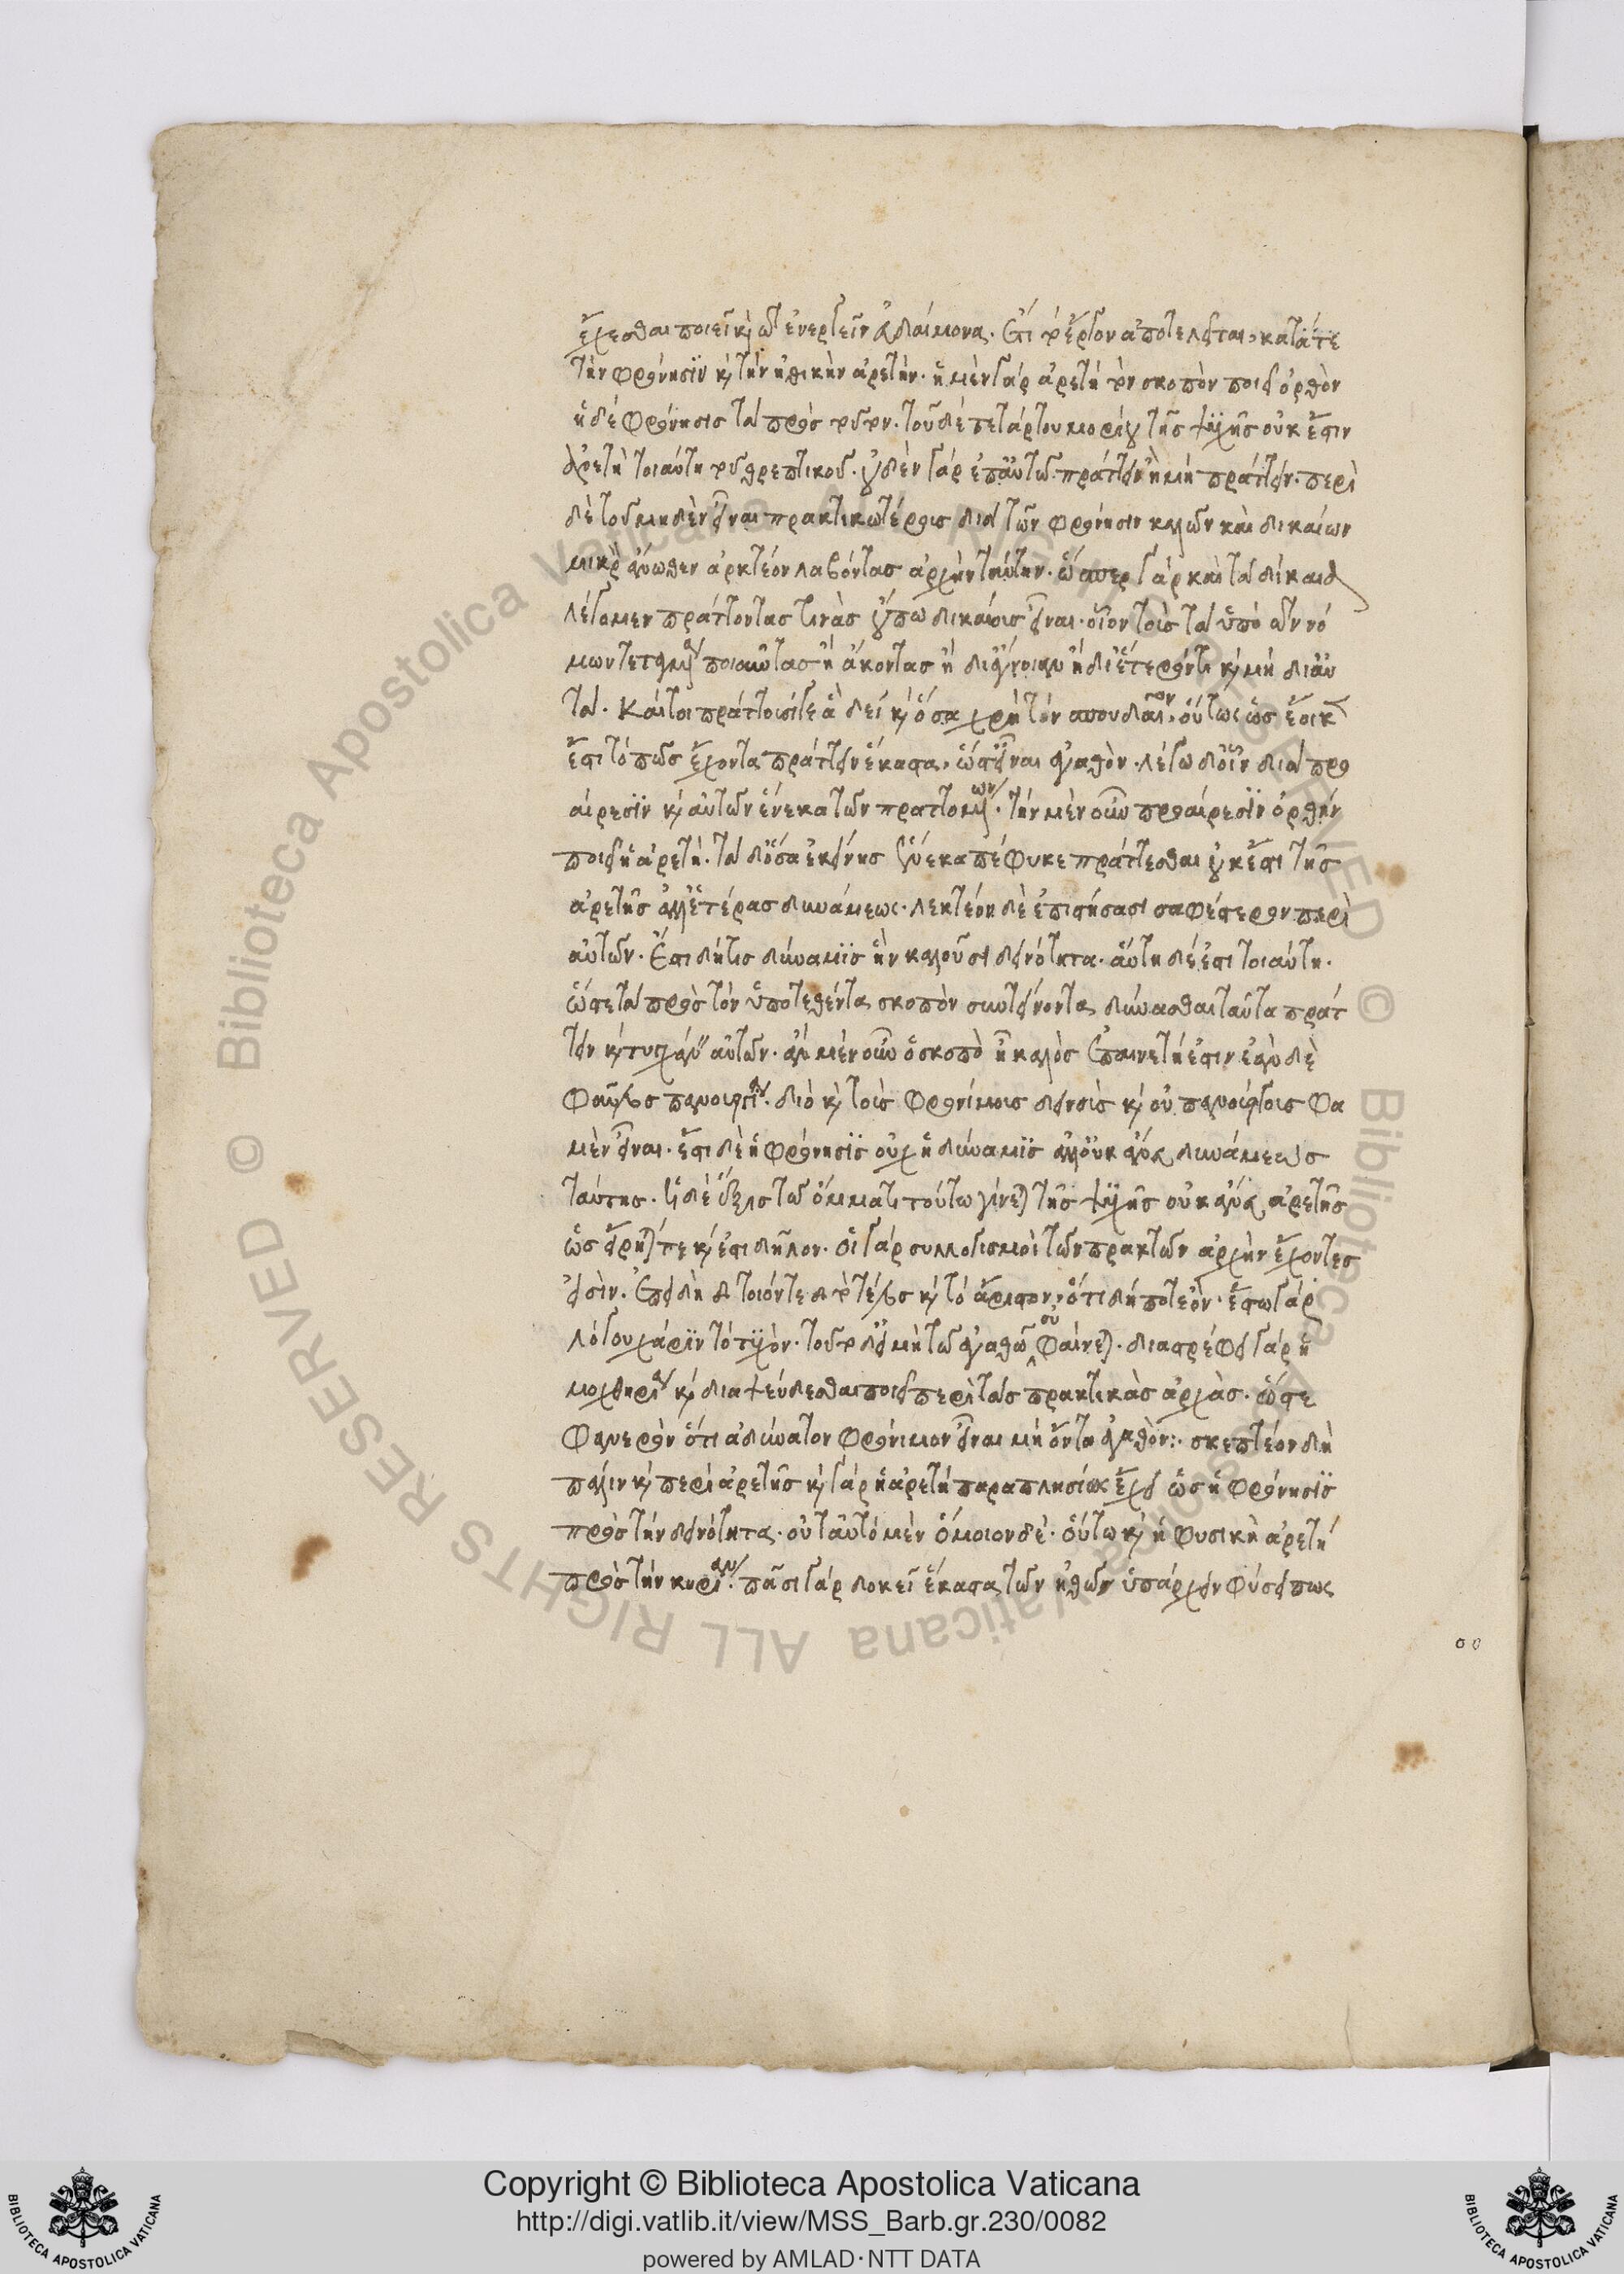 ἔχεσθαι ποιεῖ καὶ τῶ ἐνεργεῖν εὐδαίμονας. ἔτι τὸ ἔργον ἀποτελεῖται, κατά τε
τὴν φρόνησιν καὶ τὴν ἠθικὴν ἀρετήν. ἡ μὲν γὰρ ἀρετὴ τὸν σκοπὸν ποιεῖ ὀρθὸν
ἡ δὲ φρόνησις τὰ πρὸς τοῦτον. τοῦ δὲ τετάρτου μορίου τῆς ψυχῆς οὐκ ἔστιν
ἀρετὴ τοιαύτη τοῦ θρεπτικοῦ. οὐδὲν γὰρ ἐπ' αὐτῶ πράττειν ἢ μὴ πράττειν. περὶ
δὲ τοῦ μηδὲν εἶναι πρακτικωτέρους διὰ τὴν φρόνησιν καλῶν καὶ δικαίων
μικρὸν ἄνωθεν ἀρκτέον λαβόντας ἀρχὴν ταύτην. ὥσπερ γὰρ καὶ τὰ δίκαια
λέγομεν πράττοντας τινὰς οὔπω δικαίους εἶναι. οἷον τοὺς τὰ ὑπὸ τῶν νό
μων τεταγμένα ποιοῦντας ἢ ἄκοντας ἢ δι' ἄγνοιαν ἢ δι' ἕτερόν τι καὶ μὴ δι' αὐ
τά. καίτοι πράττουσί γε ἃ δεῖ καὶ ὅσα χρὴ τὸν σπουδαῖον, οὕτως ὡς ἔοικε
ἔστι τό πως ἔχοντα πράττειν ἕκαστα, ὥστ' εἶναι ἀγαθόν. λέγω δ' οἷον διὰ προ
αίρεσιν καὶ αὐτῶν ἕνεκα τῶν πραττομένων. τὴν μὲν οὖν προαίρεσιν ὀρθὴν
ποιεῖ ἡ ἀρετή. τὰ δ' ὅσα ἐκείνης ἕνεκα πέφυκε πράττεσθαι οὐκ ἔστι τῆς
ἀρετῆς ἀλλ' ἑτέρας δυνάμεως. λεκτέον δὲ ἐπιστήσασι σαφέστερον περὶ
αὐτῶν. ἔστι δή τις δύναμις ἣν καλοῦσι δεινότητα. αὕτη δέ ἐστι τοιαύτη.
ὥστε τὰ πρὸς τὸν ὑποτεθέντα σκοπὸν συντείνοντα δύνασθαι ταῦτα πράτ
τειν καὶ τυγχάνειν αὐτῶν. ἂν μὲν οὖν ὁ σκοπὸς ᾖ καλὸς ἐπαινετή ἐστιν ἐὰν δὲ
φαῦλος πανουργία. διὸ καὶ τοὺς φρονίμους δεινοὺς καὶ οὐ πανούργους φα
μὲν εἶναι. ἔστι δὲ ἡ φρόνησις οὐχ ἡ δύναμις ἀλλ' οὐκ ἄνευ δυνάμεως
ταύτης. ἡ δὲ ἕξις τῶ ὄμματι τούτω γίνεται τῆς ψυχῆς οὐκ ἄνευ ἀρετῆς
ὡς εἴρηταί τε καὶ ἔστι δῆλον. οἱ γὰρ συλλογισμοὶ τῶν πρακτῶν ἀρχὴν ἔχοντες
εἰσίν. ἐπειδὴ τοιόνδε τὸ τέλος καὶ τὸ ἄριστον, ὅτι δή ποτε ὄν. ἔστω γὰρ
λόγου χάριν τὸ τυχόν. τοῦτο δ' εἰ μὴ τῶ ἀγαθῶ οὐ φαίνεται. διαστρέφει γὰρ ἡ
μοχθηρία καὶ διαψεύδεσθαι ποιεῖ περὶ τὰς πρακτικὰς ἀρχάς. ὥστε
φανερὸν ὅτι ἀδύνατον φρόνιμον εἶναι μὴ ὄντα ἀγαθόν:. σκεπτέον δὴ
πάλιν καὶ περὶ ἀρετῆς καὶ γὰρ ἡ ἀρετὴ παραπλησίως ἔχει ὡς ἡ φρόνησις
πρὸς τὴν δεινότητα. οὐ ταὐτὸ μὲν ὅμοιον δέ. οὕτω καὶ ἡ φυσικὴ ἀρετὴ
πρὸς τὴν κυρίαν. πᾶσι γὰρ δοκεῖ ἕκαστα τῶν ἠθῶν ὑπάρχειν φύσει πως
Copyright © Biblioteca Apostolica Vaticana
http://digi.vatlib.it/view/MSS_Barb.gr.230/0082
powered by AMLAD·NTT DATA
BIBLIOTECA APOSTOLICA VATICANA
BIBLIOTECA APOSTOLICA VATICANA
© Biblioteca Apostolica Vaticana ALL RIGHTS RESERVED
© Biblioteca Apostolica Vaticana ALL RIGHTS RESERVED